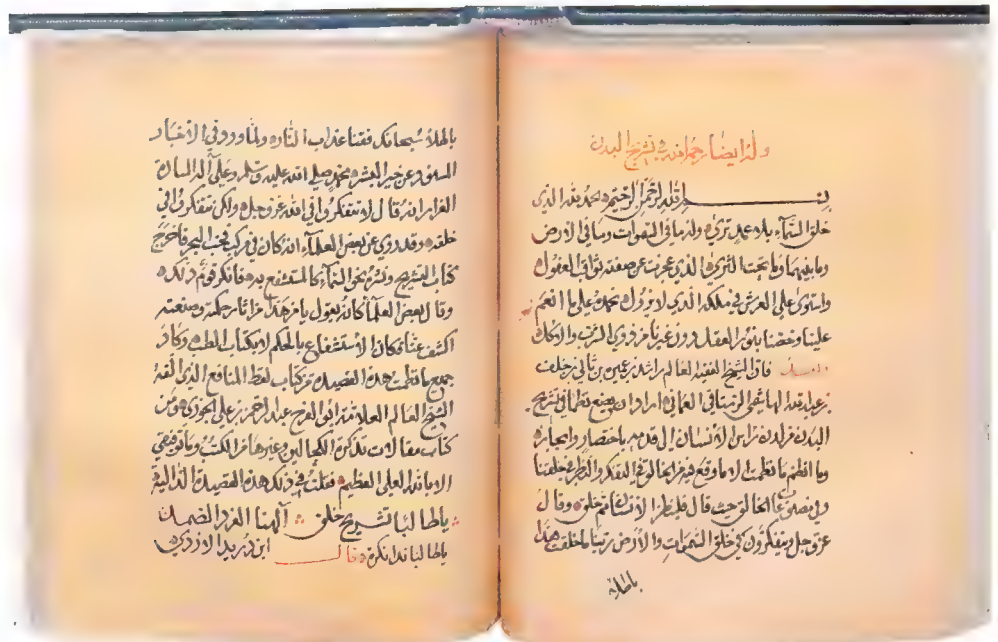 وله ايضا رحمه الله في تشريح البدن
بسم الله الرحمن الرحيم الحمد لله الذي
خلق السماء بلا عمد ترى وله ما في السموات وما في الارض
وما بينهما وما تحت الثرى الذي عجزت عن صفته ثواقب العقول
واستوى على العرش في ملكه الذي لا يزول نحمده على ما انعم
علينا وخصنا بنور العقل دون غيرنا من ذوي الشرب والاكل
فان الشيخ الفقيه العالم راشد بن عميرة بن ثاني بن خلف
بن عبد الله الهاشمي الرستاقي العماني اراد ان يصنع نظما في تشريح
البدن من لدن راس الانسان الى قدمه باختصار وايجاز
وما انظم ما نظمت الا ما وقع فيه من الخالق في التفكر والنظر في خلقنا
وفي الخالق حيث قال فلينظر الانسان مم خلق وقال
عز وجل ويتفكرون في خلق السموات والارض ربنا ما خلقت هذا
باطلا
باطلا سبحانك فقنا عذاب النار ولما ورد في الاخبار
عن خير البشر محمد صلى الله عليه وسلم وعلى آله السادة
الغرر انه قال لا تتفكروا في الله عز وجل ولكن تفكروا في
خلقه وقد روي عن بعض العلماء انه كان في مركب في البحر فاخرج
كتاب التشريح ونشره نحو السماء كالمستشفع به فانكر قوم ذلك
وقال بعض العلماء كانه يقول يا من هذا من اثار حكمته وصنعته
اكشف عنا فكان الاستشفاع بالحكم لا بكتاب الطب وكان
جميع ما نظمت هذه القصيدة من كتاب لقط المنافع الذي الفه
الشيخ العالم العلامة ابو الفرج عبد الرحمن بن علي الجوزي ومن
كتاب مقالات تذكرة الكحالين وغيرها من الكتب وما توفيقي
الا بالله العلي العظيم فقلت في ذلك هذه القصيدة الدالية
يا طالبا تشريح خلق الهنا الفرد الصمد
يا طالبا تذكرة قال ابن دريد الازدي